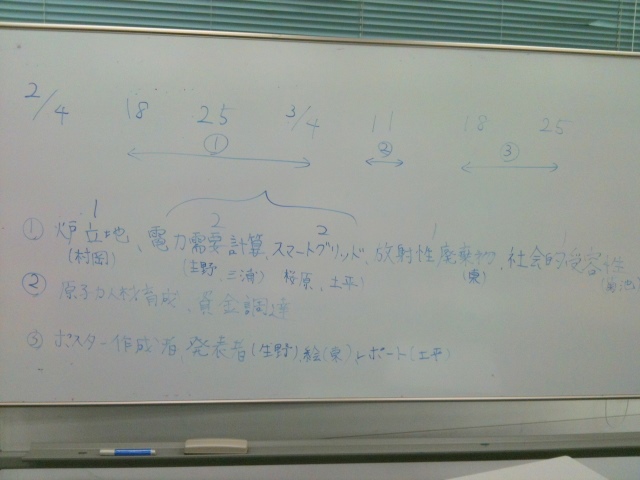 2/4 18 25 3/4 11 18 25
① ② ③
1 2 2 1 1
① 炉立地、電力需要計算、スマートグリッド、放射性廃棄物、社会的受容性
(村岡) (生野、三浦) 桜原、土平) (東) (菊池)
② 原子力人材育成、資金調達
③ ポスター作成者、発表者(生野)、絵(東)、レポート(土平)